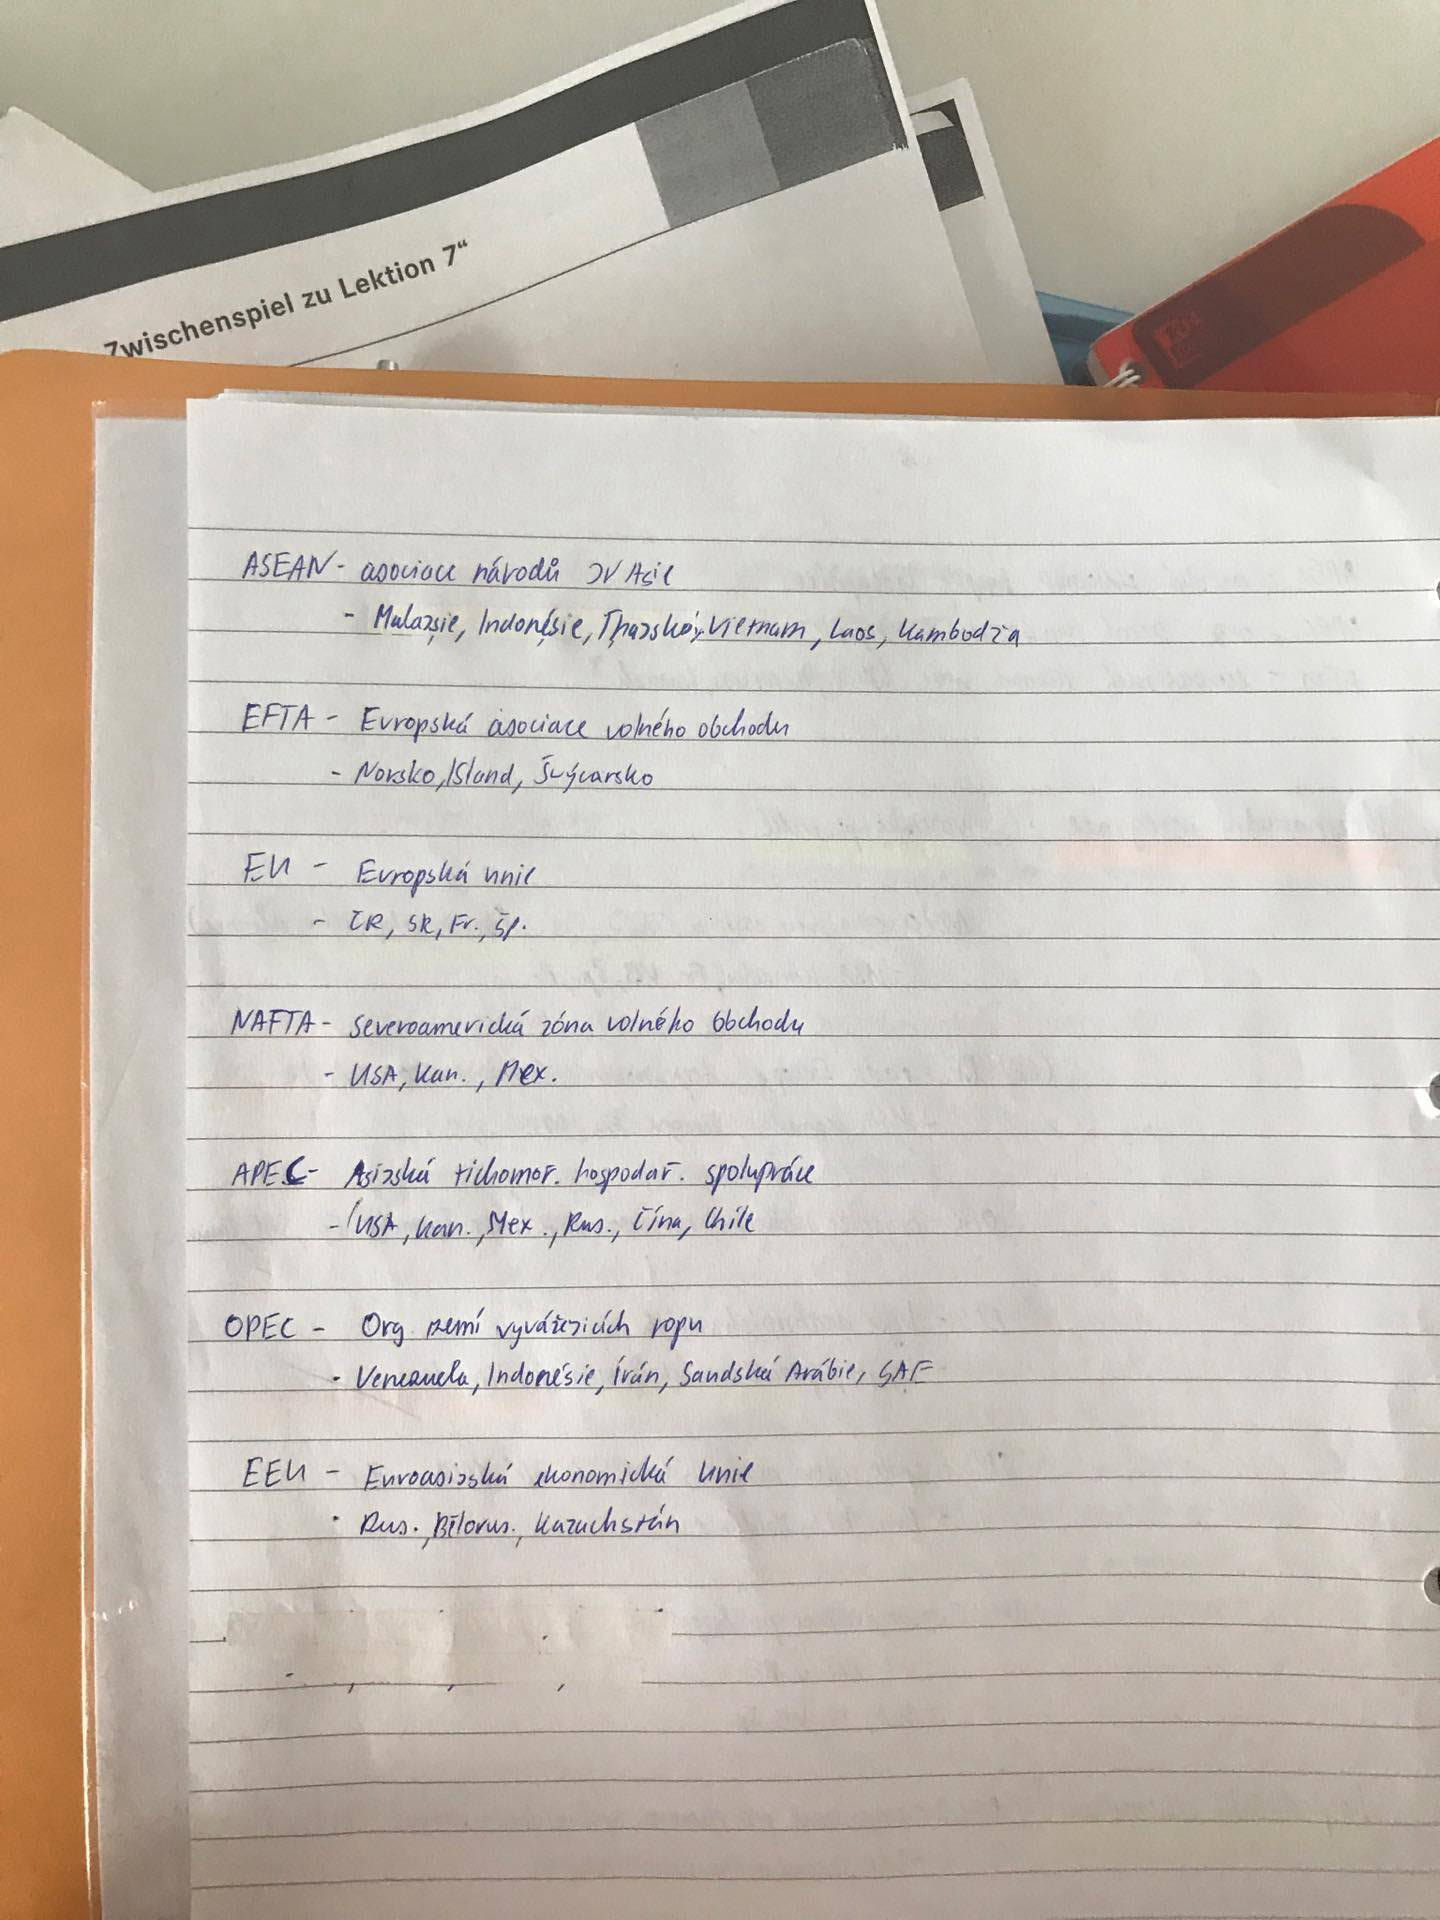 Zwischenspiel zu Lektion 7“
ASEAN - asociace národů JV Asie
- Malajsie, Indonésie, Thajsko, Vietnam, Laos, Kambodža
EFTA - Evropská asociace volného obchodu
- Norsko, Island, Švýcarsko
EU - Evropská unie
- ČR, SR, Fr., Šp.
NAFTA - severoamerická zóna volného obchodu
- USA, Kan., Mex.
APEC - Asijská tichomoř. hospodář. spolupráce
- USA, Kan., Mex., Rus., Čína, Chile
OPEC - Org zemí vyvážejících ropu
- Venezuela, Indonésie, Írán, Saudská Arábie, SAE
EEU - Euroasijská ekonomická unie
- Rus., Bělorus., Kazachstán